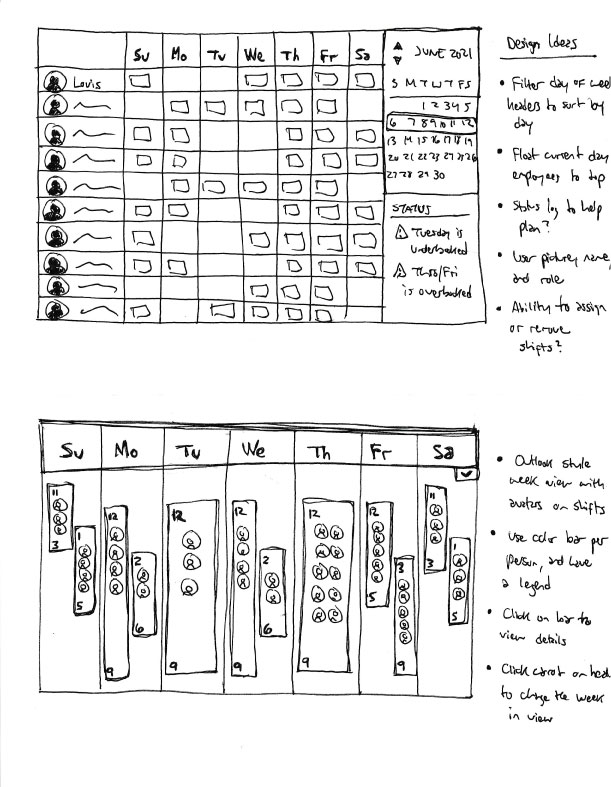 Su Mo Tu We Th Fr Sa
Louis
JUNE 2021
S M T W T F S
1 2 3 4 5
6 7 8 9 10 11 12
13 14 15 16 17 18 19
20 21 22 23 24 25 26
27 28 29 30
STATUS
Tuesday is
underbooked
Thro/Fri
is overbooked
Design Ideas
• Filter day of week
headers to sort by
day
• Float current day
employees to top
• Status log to help
plan?
• User picture, name,
and role
• Ability to assign
or remove
shifts?
Su Mo Tu We Th Fr Sa
11
3
1
5
12
9
2
6
12
9
12
9
2
6
12
9
12
5
3
9
11
3
1
5
• Outlook style
week view with
avatars on shifts
• Use color bar per
person, and have
a legend
• Click on bar to
view details
• Click carrot on head
to change the week
in view